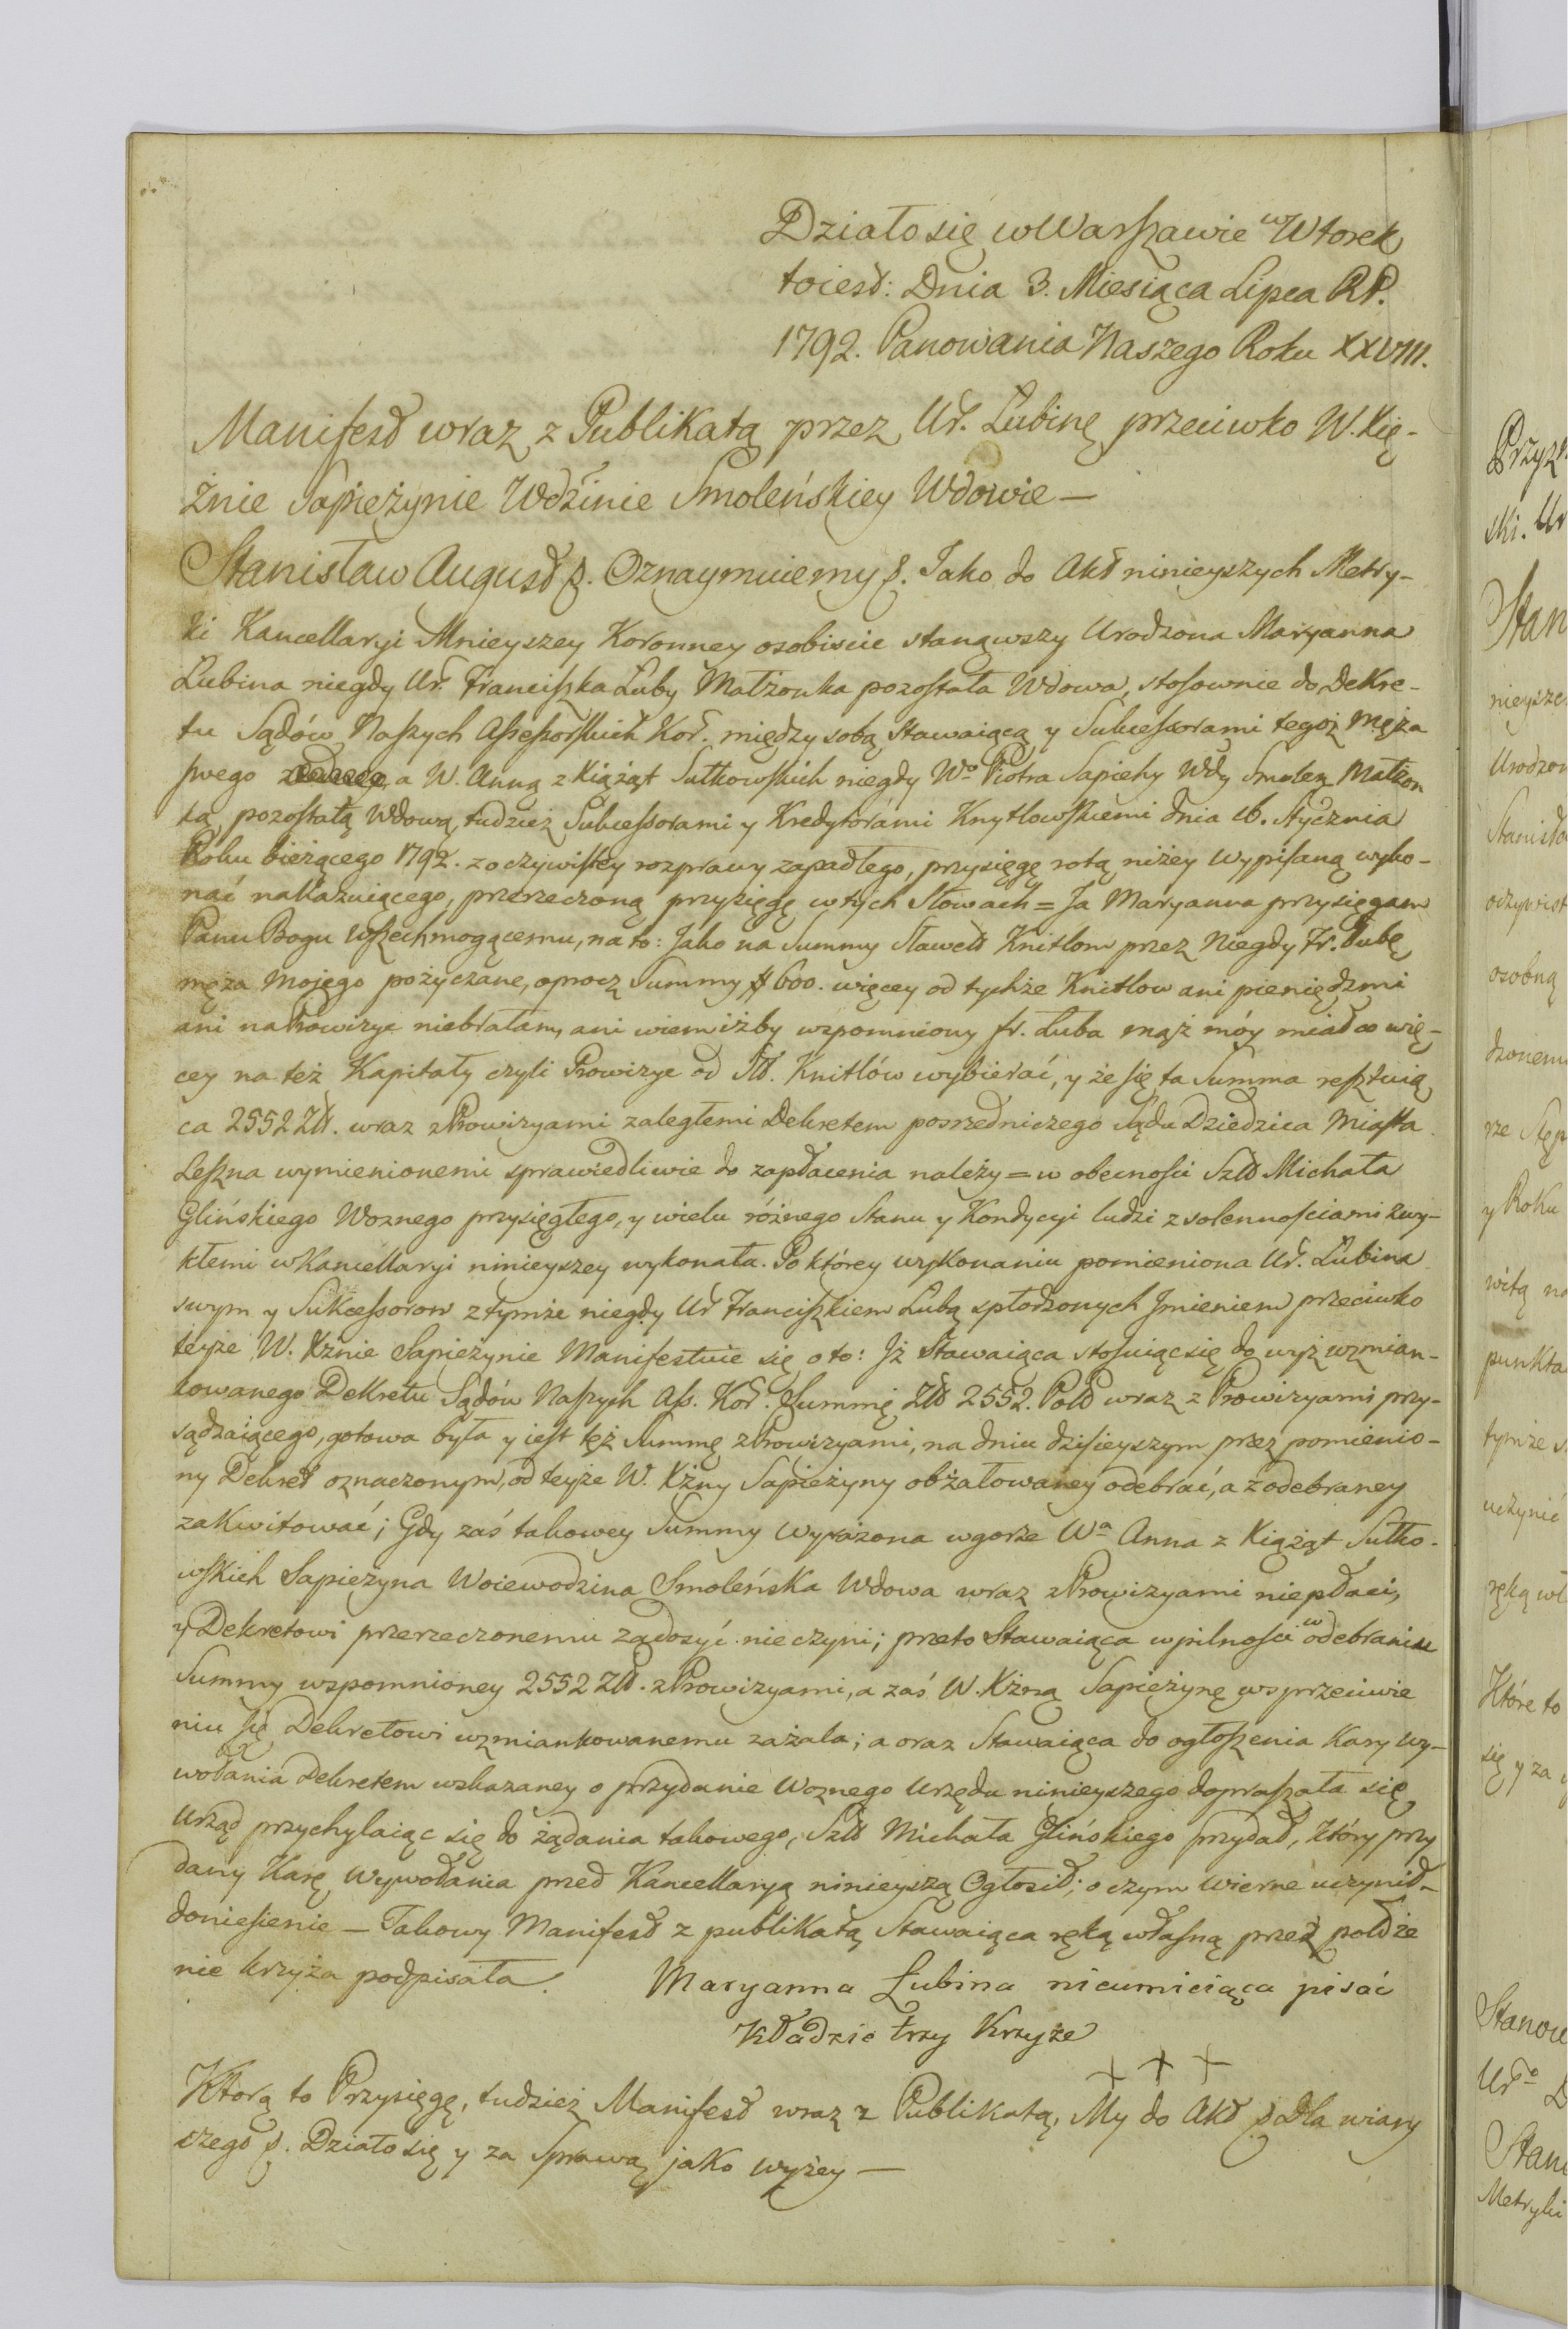 Działo się w Warszawie w Wtorek
toiest: Dnia 3. Miesiąca Lipca RP.
1792. Panowania Naszego Roku XXVIII.
Manifest wraz z Publikatą przez Ur. Lubinę przeciwko W. Xię-
żnie Sapieżynie Wdzinie Smoleńskiey Wdowie —
Stanisław August p. Oznaymuiemy p. Jako do Akt ninieyszych Metry-
ki Kancellaryi Mnieyszey Koronney osobiscie stanąwszy Urodzona Maryanna
Lubina niegdy Ur. Franciszka Luby Małżonka pozostała Wdowa, stosownie do Dekre-
tu Sądów Naszych Assessorskich Kor. między sobą Stawaiącą y Sukcessorami tegoż męża
swego a W. Anną z Xiążąt Sułkowskich niegdy Wo Piotra Sapiehy Wdy Smoleń. Małżon
ką pozostałą Wdową, tudzież Sukcessorami y Kredytorami Knytlowskiemi dnia 16. Stycznia
Roku bieżącego 1792. z oczywistey rozprawy zapadłego, przysięgę rotą niżey wypisaną wyko-
nać nakazuiącego, przerzeczoną przysięgę w tych Słowach = Ja Maryanna przysięgam
Panu Bogu Wszechmogącemu, na to: Jako na Summy Sławet Knitlom przez Niegdy Fr. Lubę
męża mojego pożyczane, oprocz Summy # 600. więcey od tychże Knitlow ani pieniędzmi
ani na Prowizye niebrałam, ani wiem iżby wspomniony fr. Luba mąż móy miał co wię-
cey na też Kapitały czyli Prowizye od Sł. Knitlów wybierać, y że się ta Summa resztuią
ca 2552 Zł. wraz z Prowizyami zaległemi Dekretem posrzedniczego Sądu Dziedzica Miasta
Leszna wymienionemi sprawiedliwie do zapłacenia należy = w obecnosci Szl Michała
Glińskiego Woznego przysięgłego, y wielu różnego Stanu y Kondycyi ludzi z solennosciami zwy-
kłemi w Kancellaryi ninieyszey wykonała. Po którey wykonaniu pomieniona Ur. Lubina
swym y Sukcessorow z tymże niegdy Ur Franciszkiem Lubą spłodzonych Jmieniem przeciwko
teyże W. Xżnie Sapieżynie Manifestuie się o to: Jż Stawaiąca stosuiąc się do wyż wzmian-
kowanego Dekretu Sądów Naszych Ass. Kor. Summę Zł 2552. Pol wraz z Prowizyami przy-
sądzaiącego, gotowa była y iest też Summę z Prowizyami, na dniu dzisieyszym przez pomienio-
ny Dekret oznaczonym, od teyże W. Xżny Sapieżyny obżałowaney odebrać, a z odebraney
zakwitować; Gdy zaś takowey Summy wyrażona wgorze Wa Anna z Xiążąt Sułko-
wskich Sapieżyna Woiewodzina Smoleńska Wdowa wraz z Prowizyami niepłaci,
y Dekretowi przerzeczonemu zadosyć nie czyni; przeto Stawaiąca w pilnosci w odebraniu
Summy wspomnioney 2552 Zł. z Prowizyami, a zaś W. Xżną Sapieżynę w sprzeciwie
niu się Dekretowi wzmiankowanemu zażala; a oraz Stawaiąca do ogłoszenia Kary wy-
wołania Dekretem wskazaney o przydanie Woznego Urzędu ninieyszego dopraszała się
Urząd przychylaiąc się do żądania takowego, Szl Michała Glińskiego przydał, który przy
dany Karę Wywołania przed Kancellaryą ninieyszą Ogłosił; o czym wierne uczynił
doniesienie — Takowy Manifest z publikatą Stawaiąca ręką własną przez położe
nie krzyża podpisała. Maryanna Lubina nieumieiąca pisać
kładzie trzy Krzyże
+ + +
Którą to Przysięgę, tudzież Manifest wraz z Publikatą, My do Akt p Dla wiary
czego p. Działo się y za Sprawą jako wyżey —